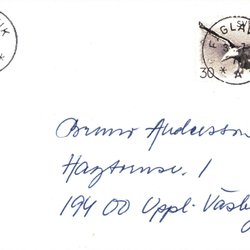 UK
FÅGLA
30
Bruno Andersson
Hagtornsv. 1
194 00 Uppl. Väsby